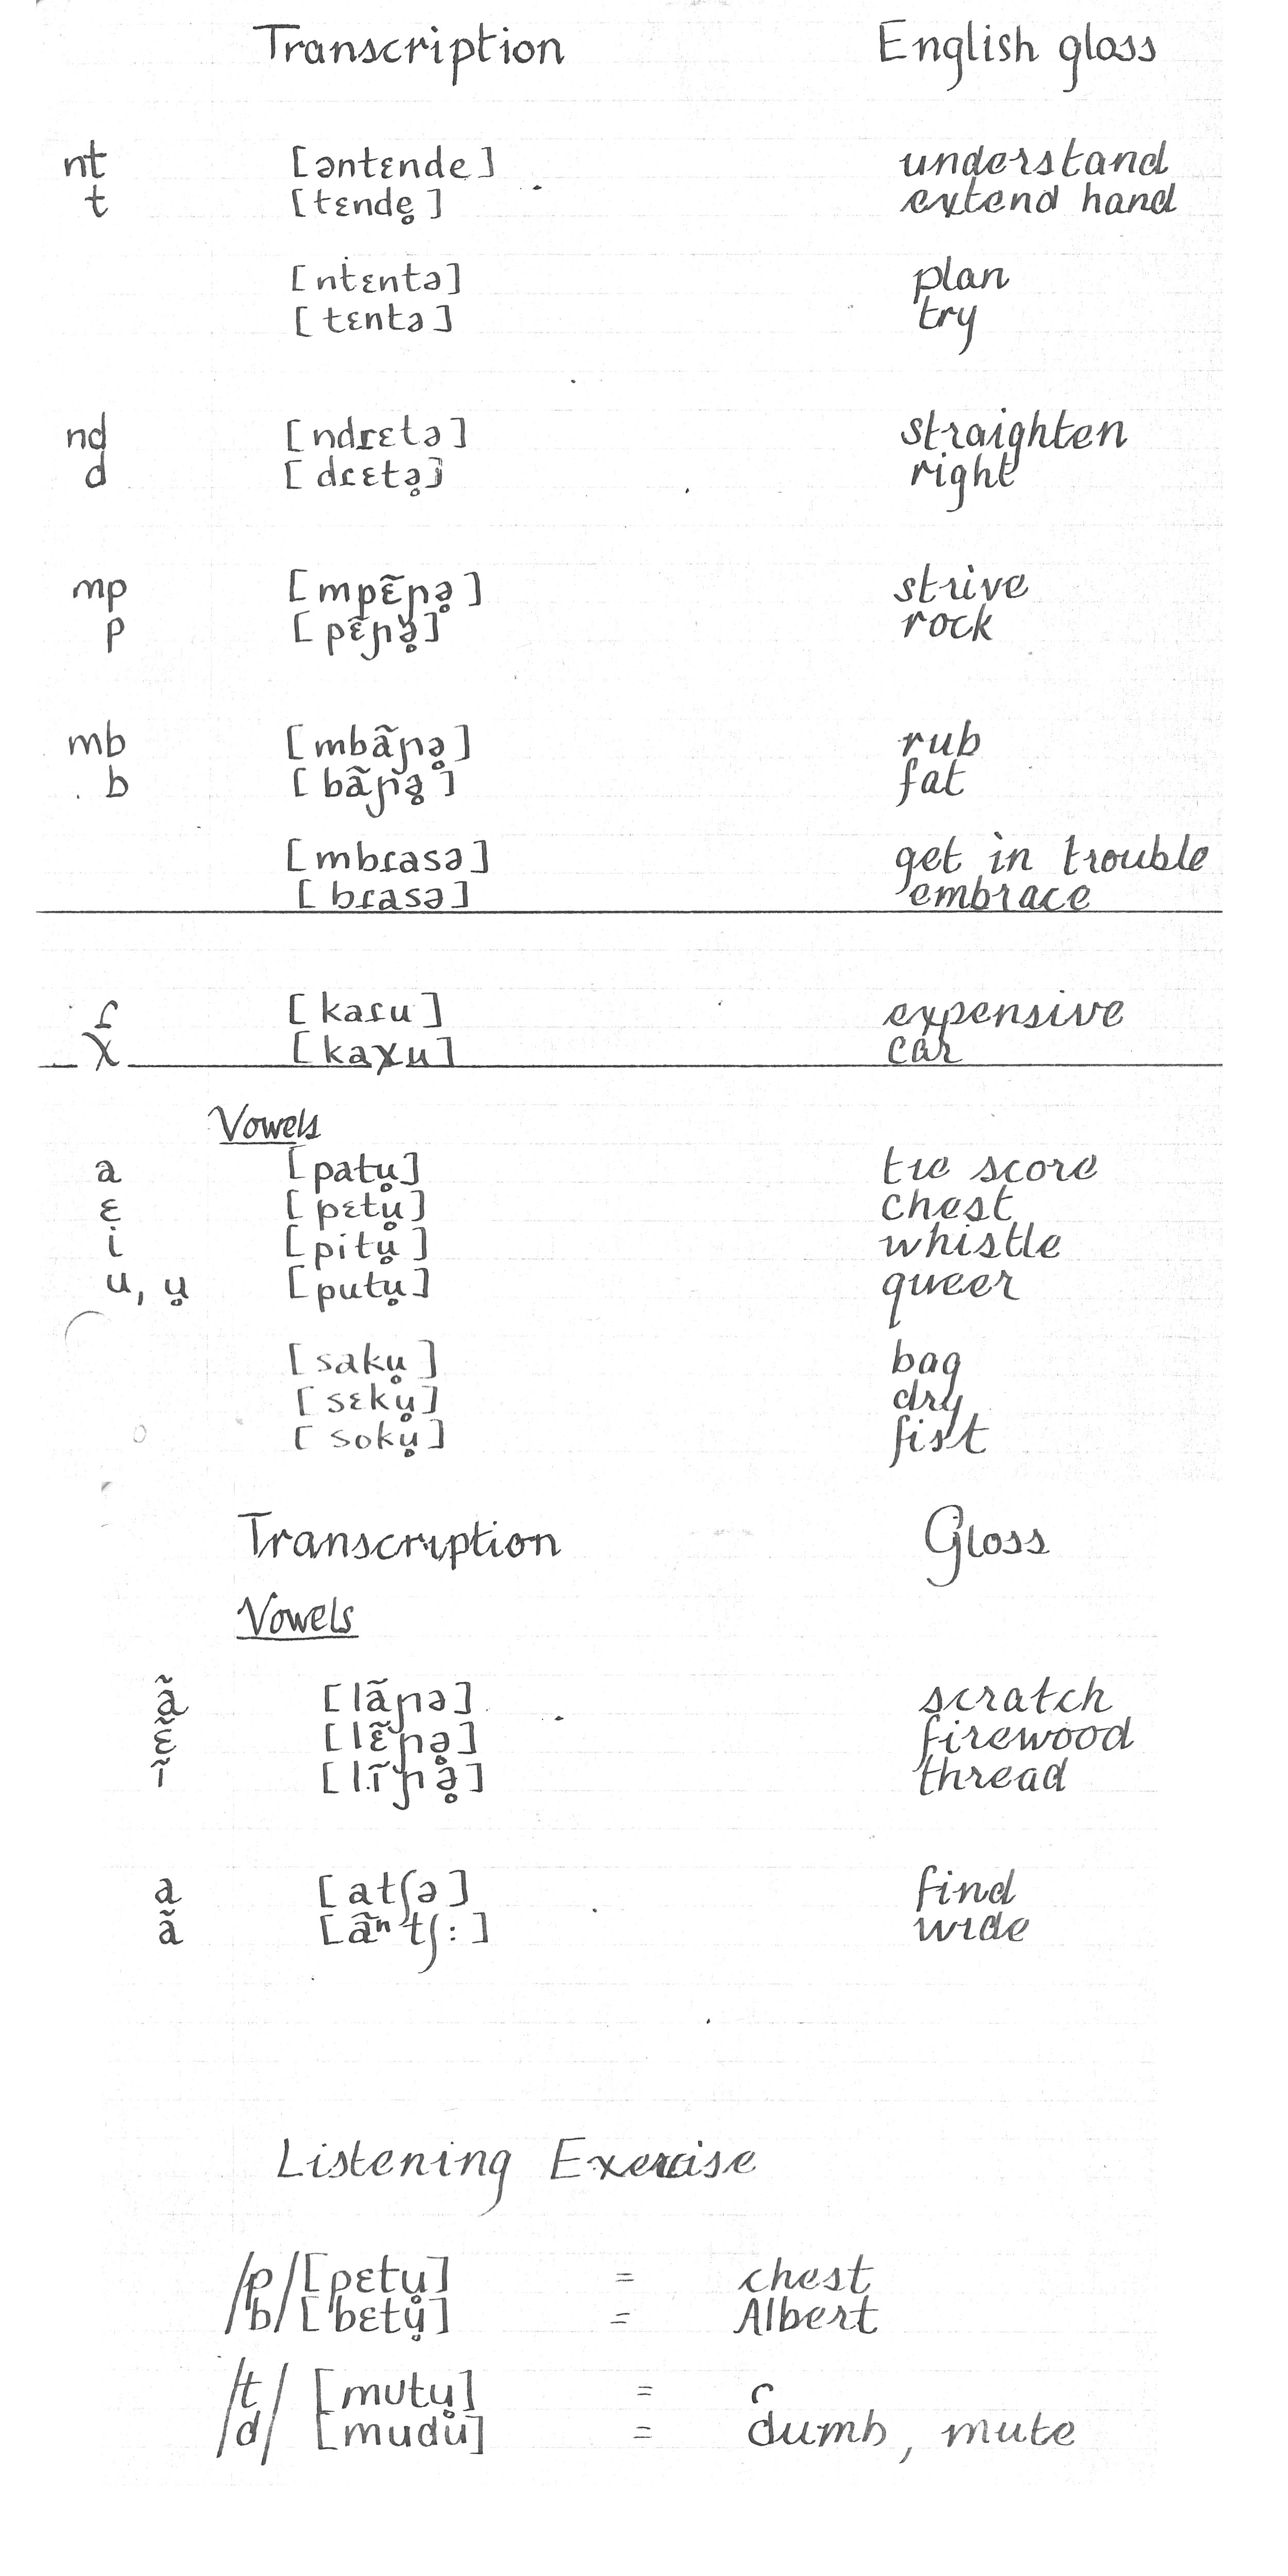 Transcription English gloss
nt [əntɛnde] understand
t [tɛnde̥] extend hand
[ntɛntə] plan
[tɛntə] try
nd [ndɾɛtə] straighten
d [dɾɛtə̥] right
mp [mpɛ̃ɲə̥] strive
p [pɛ̃ɲə̥] rock
mb [mbãɲə̥] rub
b [bãɲə̥] fat
[mbɾasə] get in trouble
[bɾasə] embrace
ɾ [kaɾu] expensive
χ [kaχu] car
Vowels
a [patu̥] tie score
ɛ [pɛtu̥] chest
i [pitu̥] whistle
u, u̥ [putu̥] queer
[saku̥] bag
[sɛku̥] dry
[soku̥] fist
Transcription Gloss
Vowels
ã [lãɲə] scratch
ɛ̃ [lɛ̃ɲə̥] firewood
ĩ [lĩɲə̥] thread
a [atʃə] find
ã [ãⁿtʃ:] wide
Listening Exercise
/p/ [pɛtu̥] = chest
/b/ [bɛtu̥] = Albert
/t/ [mutu̥] =
/d/ [mudu̥] = dumb, mute